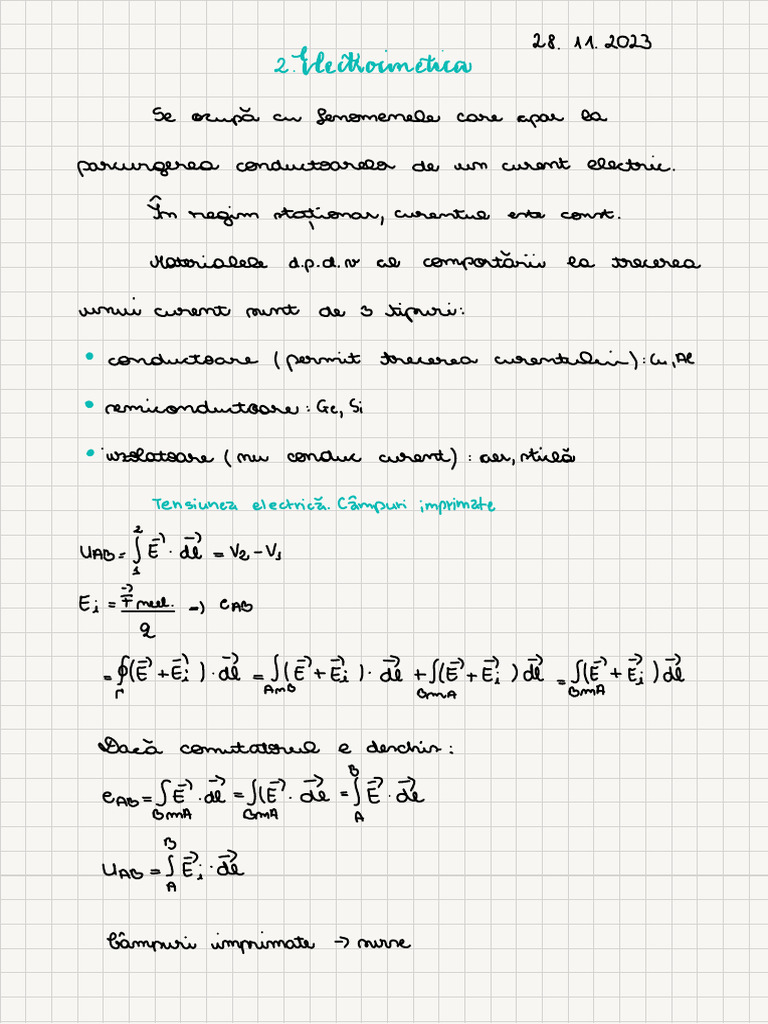 28. 11. 2023
2. Electrocinetica
Se ocupă cu fenomenele care apar la
parcurgerea conductoarelor de un curent electric.
În regim staționar, curentul este const.
Materialele d.p.d.v al comportării la trecerea
unui curent sunt de 3 tipuri:
• conductoare (permit trecerea curentului): Cu, Al
• semiconductoare: Ge, Si
• izolatoare (nu conduc curent): aer, sticlă
Tensiunea electrică. Câmpuri imprimate
U_AB = ∫₁² E⃗ · d⃗l = V₂ - V₁
E_i = F⃗ neel. / q → e_AB
= ∮_Γ (E⃗ + E⃗_i) · d⃗l = ∫_AmB (E⃗ + E⃗_i) · d⃗l + ∫_BmA (E⃗ + E⃗_i) d⃗l = ∫_BmA (E⃗ + E⃗_i) d⃗l
Dacă comutatorul e deschis:
e_AB = ∫_BmA E⃗ · d⃗l = ∫_BmA (E⃗ · d⃗l = ∫_A^B E⃗ · d⃗l
U_AB = ∫_A^B E⃗_i · d⃗l
Câmpuri imprimate → surse